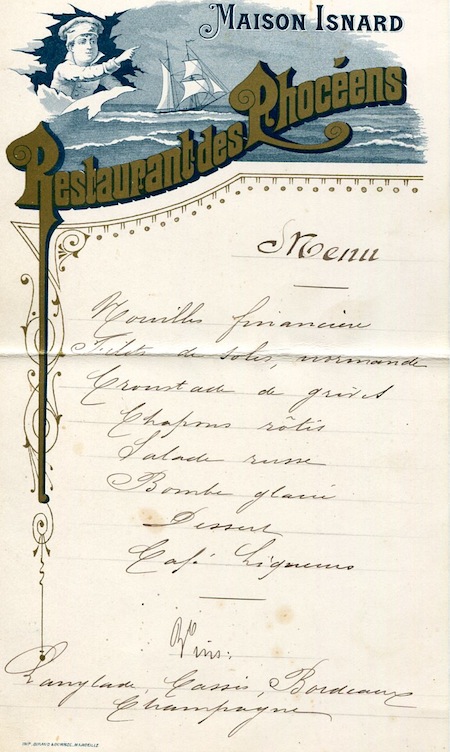 Maison Isnard
Restaurant des Phocéens
Menu
Nouilles financière
Filets de soles, normande
Croustade de grives
Chapons rôtis
Salade russe
Bombe glacée
Dessert
Café Liqueurs
Vins:
Langlade, Cassis, Bordeaux
Champagne
MARSEILLE